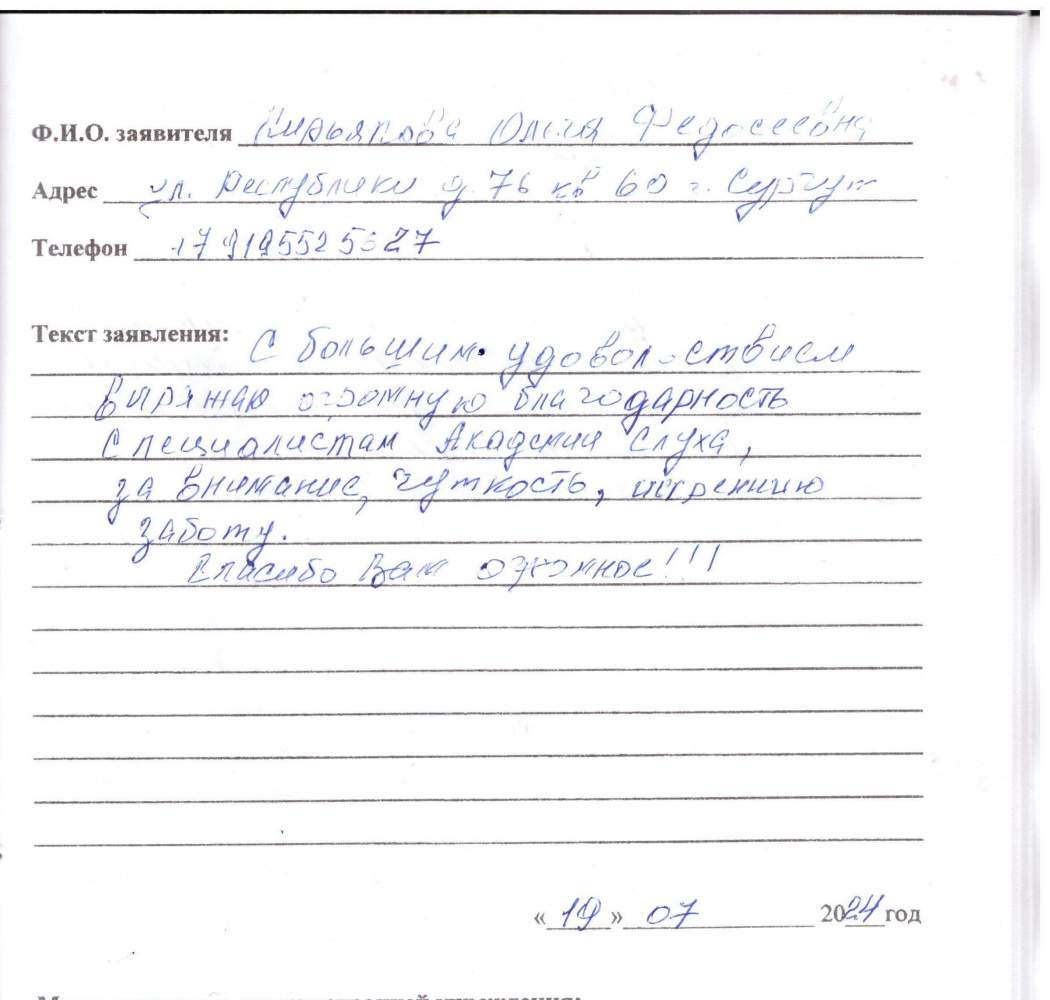 Ф.И.О. заявителя Кирьякова Юлия Федосеевна
Адрес ул. Республики д. 76 кв 60 г. Сургут
Телефон +79195525527
Текст заявления: С большим удовольствием
выражаю огромную благодарность
специалистам Академии Слуха,
за внимание, чуткость, искреннию
заботу.
Спасибо Вам огромное!!!
«19» 07 2024 год